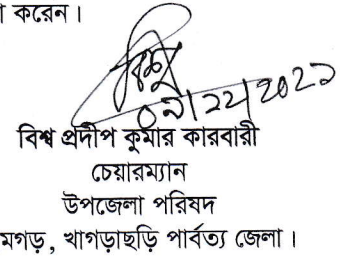 করেন।
০৯/১১/২০২১
বিশ্ব প্রদীপ কুমার কারবারী
চেয়ারম্যান
উপজেলা পরিষদ
মগড়, খাগড়াছড়ি পার্বত্য জেলা।